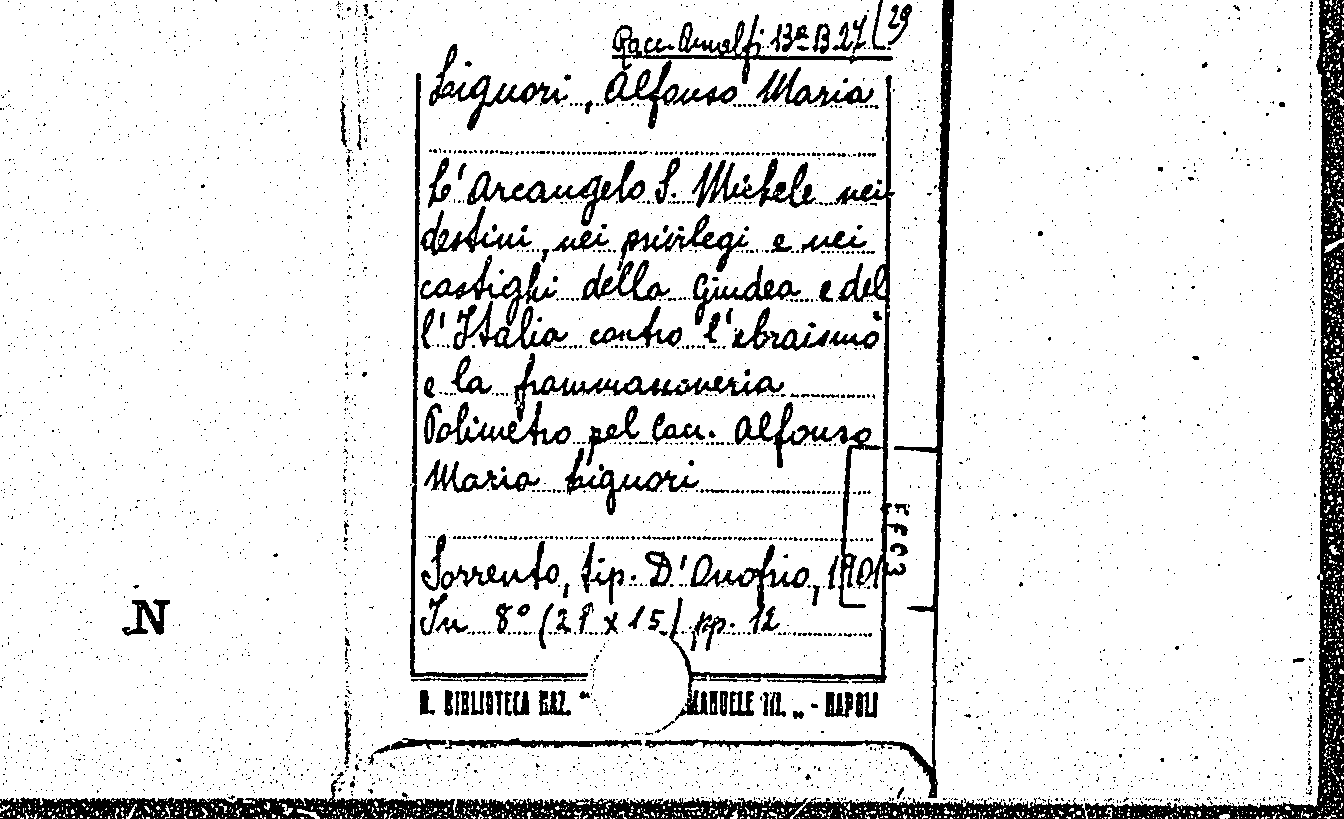 Racc. Amalfi 13ª B. 27 [29
Liguori, Alfonso Maria
L'Arcangelo S. Michele nei
destini, nei privilegi e nei
castighi della Giudea e del
l'Italia contro l'ebraismo
e la frammassoneria
Polimetro pel Can. Alfonso
Maria Liguori
Sorrento, tip. D'Onofrio, 1901
In 8° (21 x 15) pp. 12
R. BIBLIOTECA NAZ. " MANUELE III. „ - NAPOLI
N